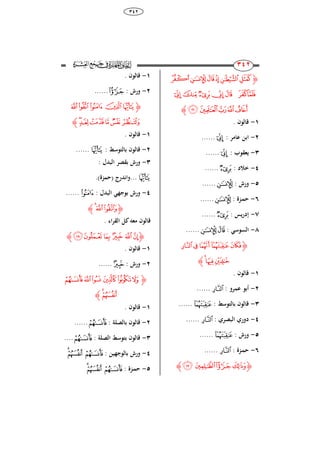 ٣٤٢
٣٤٢
﴿ كَمَثَلِ ٱلشَّيْطَٰنِ إِذْ قَالَ لِلْإِنسَٰنِ ٱكْفُرْ
فَلَمَّا كَفَرَ قَالَ إِنِّى بَرِىٓءٌ مِّنكَ إِنِّىٓ
أَخَافُ ٱللَّهَ رَبَّ ٱلْعَٰلَمِينَ ﴾
١- قالون .
٢- ابن عامر : إِنِّىٓ ......
٣- يعقوب : إِنِّىٓ ......
٤- خلاد : بَرِىٓءٌ ......
٥- ورش : لِلْإِنسَٰنِ ......
٦- حمزة : لِلْإِنسَٰنِ ......
٧- إدريس : بَرِىٓءٌ ......
٨- السوسي : قَالَ لِلْإِنسَٰنِ ......
﴿ فَكَانَ عَٰقِبَتَهُمَآ أَنَّهُمَا فِى ٱلنَّارِ
خَٰلِدَيْنِ فِيهَا ﴾
١- قالون .
٢- أبو عمرو : ٱلنَّارِ ......
٣- قالون بالتوسط : عَٰقِبَتَهُمَآ ......
٤- دوري البصري : ٱلنَّارِ ......
٥- ورش : عَٰقِبَتَهُمَآ ......
٦- حمزة : ٱلنَّارِ ......
﴿ وَذَٰلِكَ جَزَٰٓؤُا۟ ٱلظَّٰلِمِينَ ﴾
١- قالون .
٢- ورش : جَزَٰٓؤُا۟ ......
﴿ يَٰٓأَيُّهَا ٱلَّذِينَ ءَامَنُوا۟ ٱتَّقُوا۟ ٱللَّهَ
وَلْتَنظُرْ نَفْسٌ مَّا قَدَّمَتْ لِغَدٍ ﴾
١- قالون .
٢- قالون بالتوسط : يَٰٓأَيُّهَا ......
٣- ورش بقصر البدل :
يَٰٓأَيُّهَا ... واندرج (حمزة).
٤- ورش بوجهي البدل : ءَامَنُوا۟ ......
﴿ وَٱتَّقُوا۟ ٱللَّهَ ﴾
قالون معه كل القراء .
﴿ إِنَّ ٱللَّهَ خَبِيرٌۢ بِمَا تَعْمَلُونَ ﴾
١- قالون .
٢- ورش : خَبِيرٌۢ ......
﴿ وَلَا تَكُونُوا۟ كَٱلَّذِينَ نَسُوا۟ ٱللَّهَ فَأَنسَىٰهُمْ
أَنفُسَهُمْ ﴾
١- قالون .
٢- قالون بالصلة : فَأَنسَىٰهُمْ ......
٣- قالون بتوسط الصلة : فَأَنسَىٰهُمْ ....
٤- ورش بالوجهين : فَأَنسَىٰهُمْ أَنفُسَهُمْ
٥- حمزة : فَأَنسَىٰهُمْ أَنفُسَهُمْ